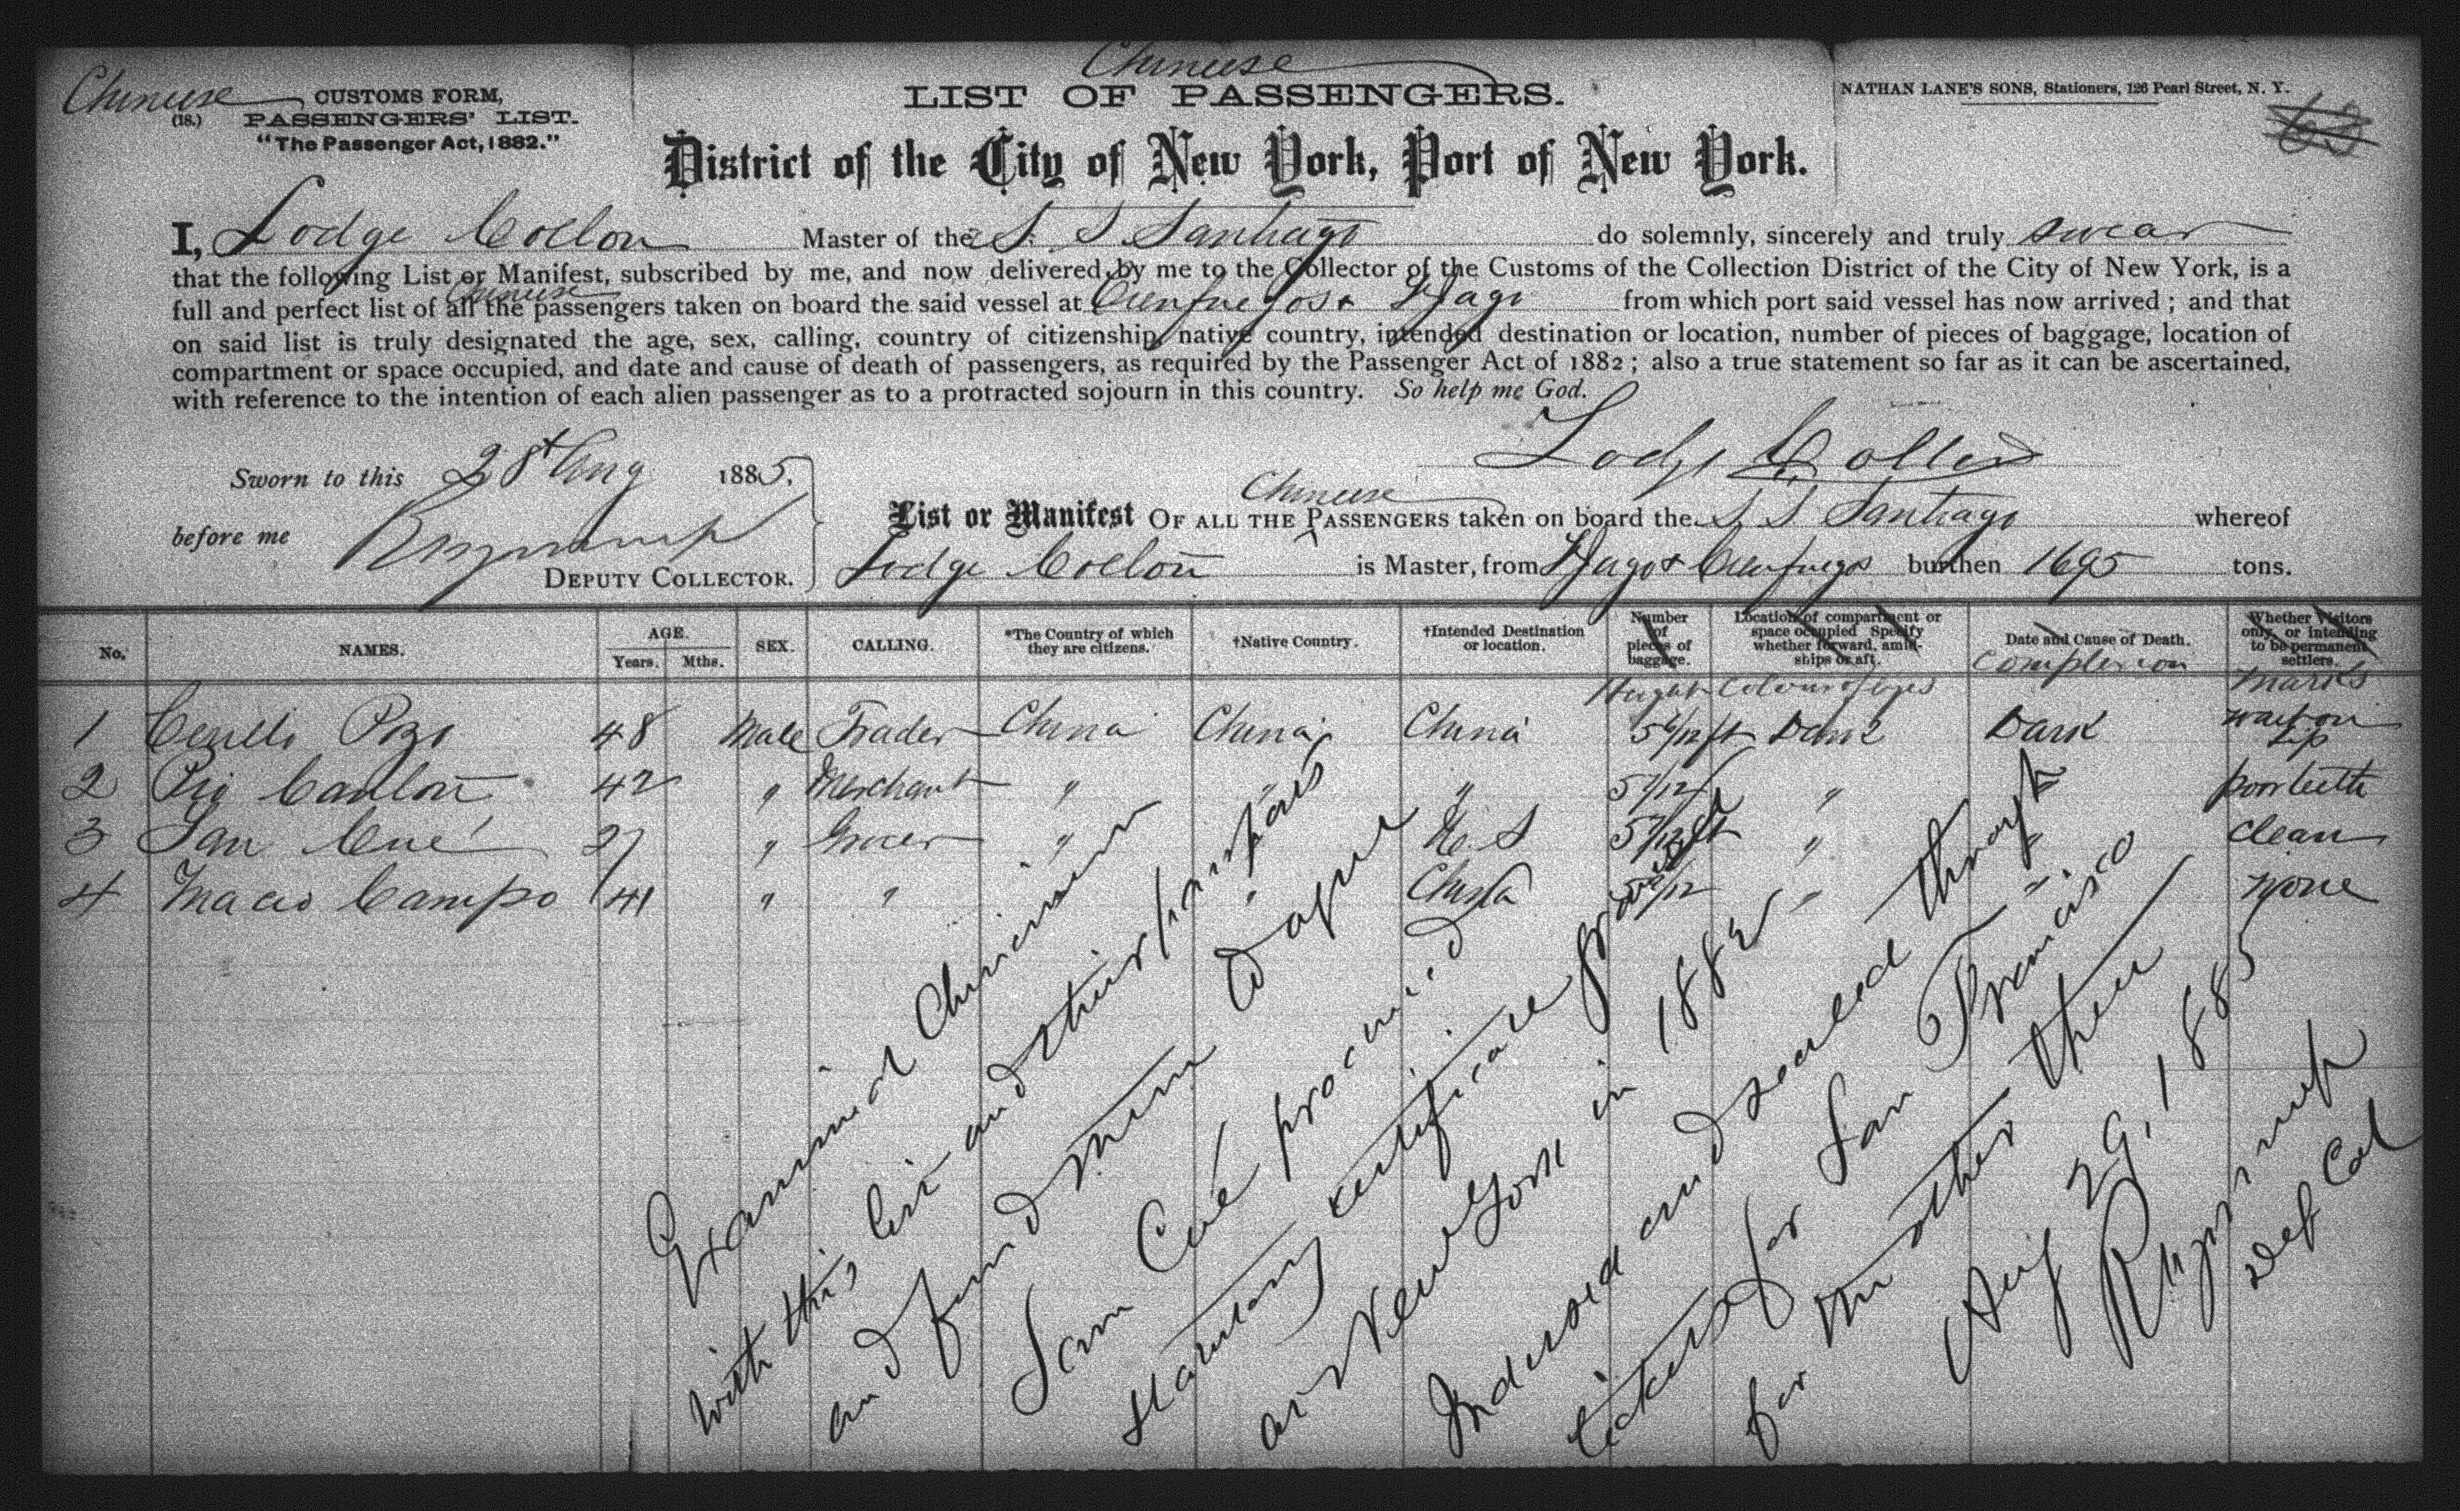 Chinese
Chinese CUSTOMS FORM,
(18.) PASSENGERS' LIST.
"The Passenger Act, 1882."
LIST OF PASSENGERS.
NATHAN LANE'S SONS, Stationers, 126 Pearl Street, N. Y.
63
District of the City of New York, Port of New York.
I, Lodge Colton Master of the S. S Santiago do solemnly, sincerely and truly swear
that the following List or Manifest, subscribed by me, and now delivered by me to the Collector of the Customs of the Collection District of the City of New York, is a
Chinese
full and perfect list of all the passengers taken on board the said vessel at Cienfuegos & StJago from which port said vessel has now arrived; and that
on said list is truly designated the age, sex, calling, country of citizenship, native country, intended destination or location, number of pieces of baggage, location of
compartment or space occupied, and date and cause of death of passengers, as required by the Passenger Act of 1882; also a true statement so far as it can be ascertained,
with reference to the intention of each alien passenger as to a protracted sojourn in this country. So help me God.
Lodge Colton
Sworn to this 28t Aug 1885.
before me
DEPUTY COLLECTOR.
Chinese
List or Manifest OF ALL THE PASSENGERS taken on board the S S Santiago whereof
Lodge Colton is Master, from StJago & Cienfuegos burthen 1695 tons.
No. NAMES. AGE. Years. Mths. SEX. CALLING. *The Country of which they are citizens. †Native Country. †Intended Destination or location. Number of pieces of baggage. Location of compartment or space occupied Specify whether forward, amidships or aft. Date and Cause of Death. Whether Visitors only, or intending to be permanent settlers.
Height Colour of eyes Complexion Marks
1 Pozo 48 Male Trader China China China 5 6/12 ft Dark Dark wart on Lip
2 Carlton 42 " Merchant " " " 5 1/12 " poor teeth
3 San Cué 27 " Grocer " U. S 5 7/12 ft " " clean
4 Macio Campo 41 " " " China " " none
Examined Chinamen
with this list and their
and found them to agree
San Cué procured
at New York in 1882
Indorsed and sealed through
tickets for San Francisco
for the other three
Aug 29, 1885
Dep Col